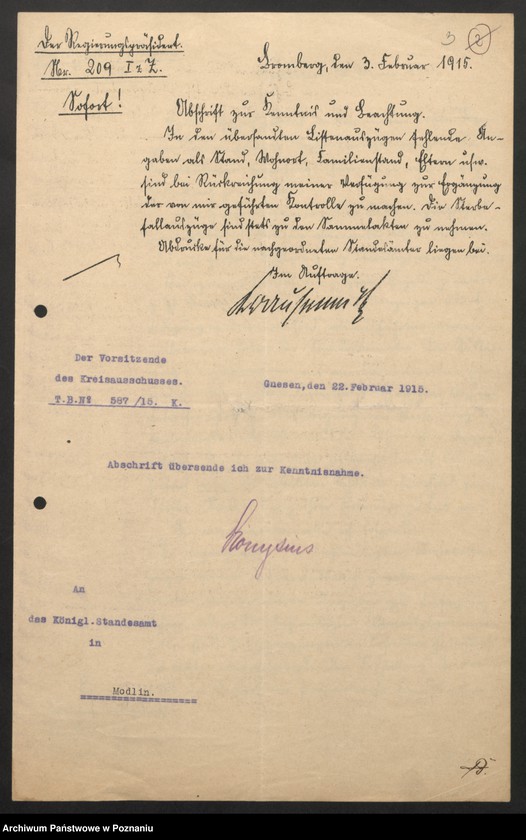 3 2
Der Regierungspräsident.
Nr. 209 I z Z.
Bromberg, den 3. Februar 1915.
Sofort!
Abschrift zur Kenntnis und Beachtung.
In den übersandten Listenauszügen fehlende An-
gaben als Stand, Wohnort, Familienstand, Eltern usw.
sind bei Rückreichung meiner Verfügung zur Ergänzung
der von mir geführten Kontrolle zu machen. Die Sterbe-
fallauszüge sind stets zu den Sammelakten zu nehmen.
Abdrucke für die nachgeordneten Standesämter liegen bei.
Im Auftrage.
Der Vorsitzende
des Kreisausschusses.
T.B.Nº 587/15. K.
Gnesen, den 22. Februar 1915.
Abschrift übersende ich zur Kenntnisnahme.
An
das Königl. Standesamt
in
Modlin.
Archiwum Państwowe w Poznaniu